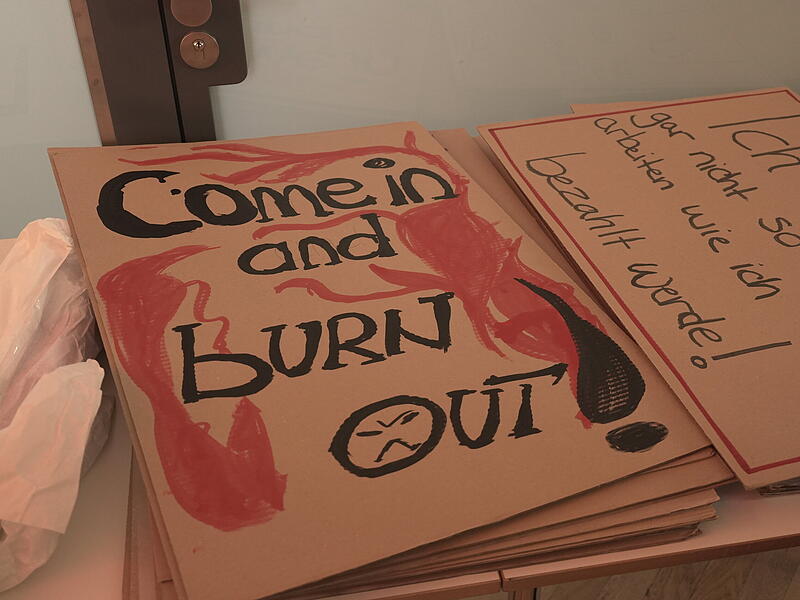 Come in
and
BURN
OUT!
Ich
gar nicht so
arbeiten wie ich
bezahlt werde!